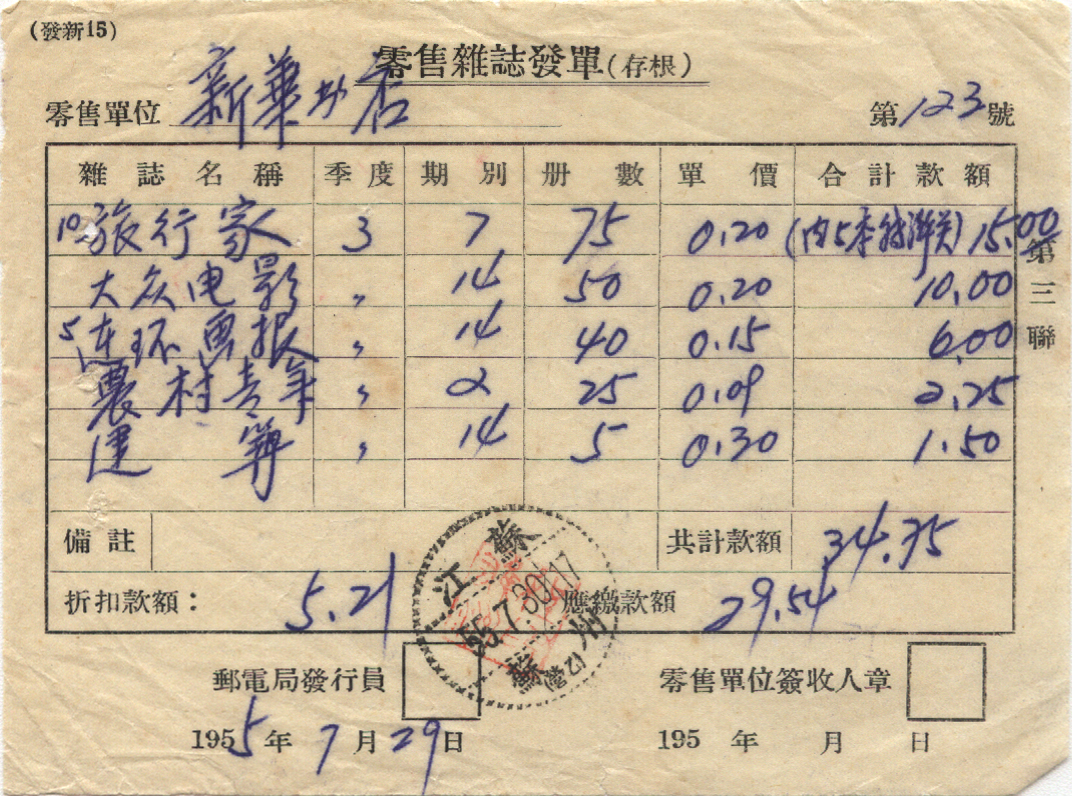 (發新15)
零售雜誌發單(存根)
零售單位 新華书店
第123號
雜誌名稱 季度 期別 册數 單價 合計款額
10 旅行家 3 7 75 0.20 (内5本 ) 15.00
大众电影 〃 14 50 0.20 10.00
5 连环画报 〃 14 40 0.15 6.00
農村青年 〃 2 25 0.09 2.25
建 〃 14 5 0.30 1.50
第三聯
備註 共計款額 34.75
折扣款額: 5.21 應繳款額 29.54
江蘇
55.7.30.17
蘇州
郵電局發行員 零售單位簽收人章
1955年7月29日 195 年 月 日